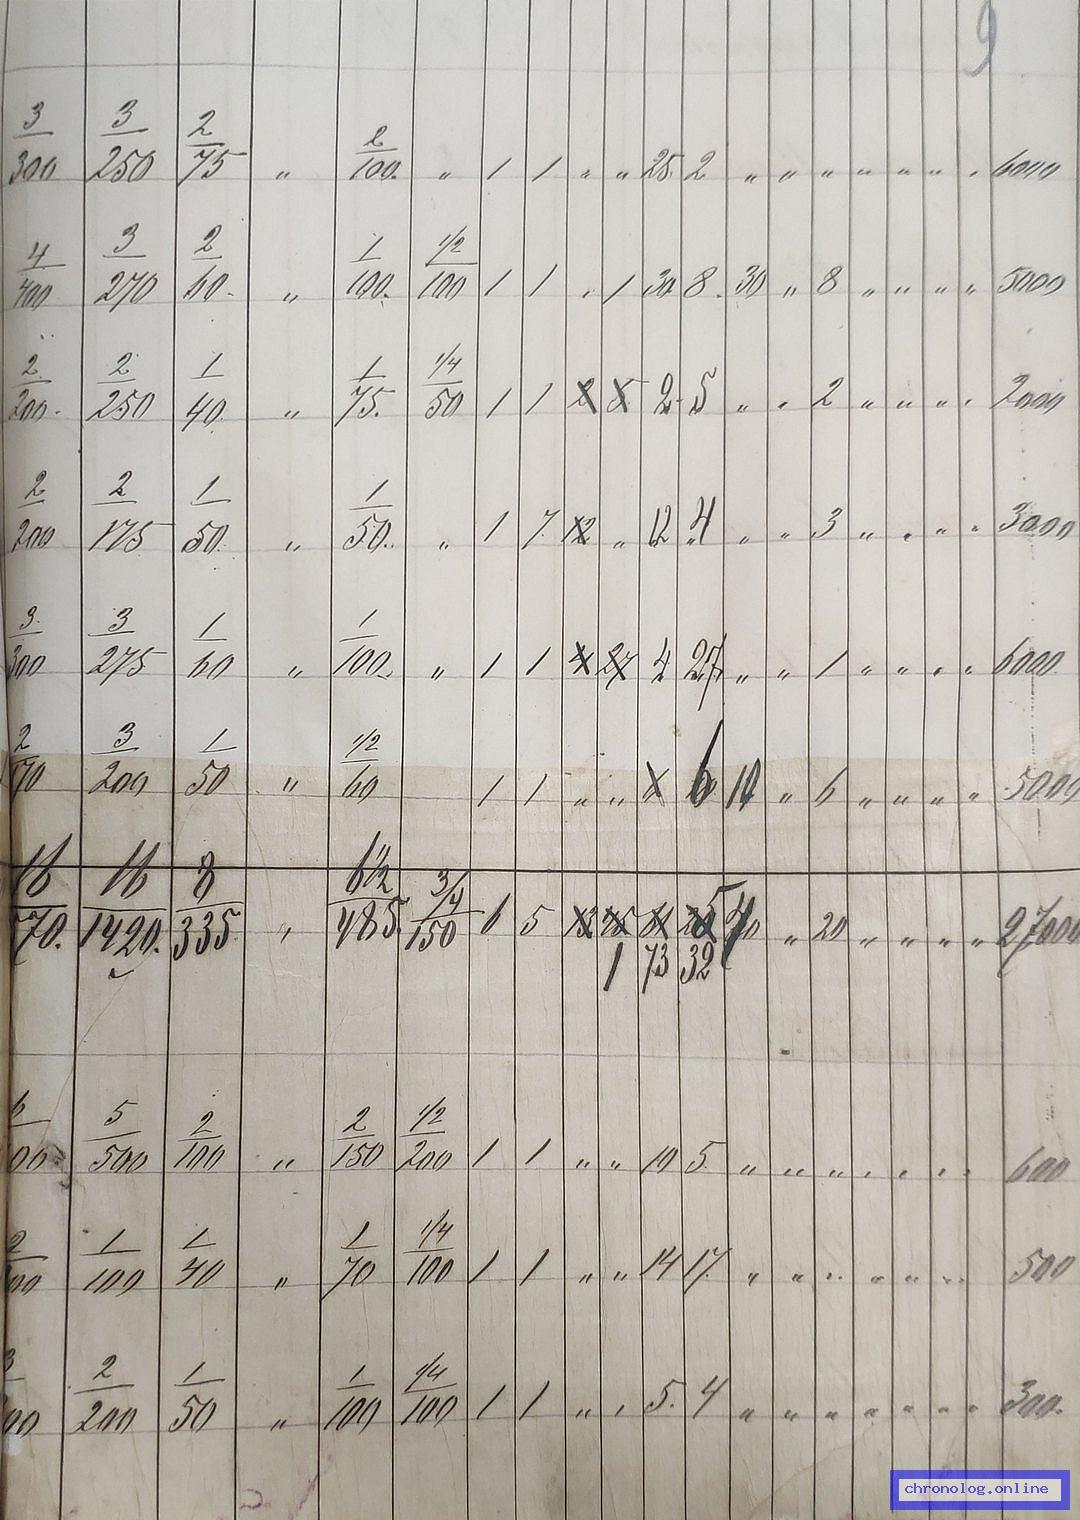 9
3/300 3/250 2/75 " 2/100. " 1 1 " " 25. 2 " " " " " " " 6000
4/400 3/270 2/60. " 1/100. ½/100 1 1 " 1 30 8. 30 " 8 " " " " 5000
2/200. 2/250 1/40. " 1/75. ¼/50 1 1 2 5 " " 2 " " " " 2000
2/200 2/175 1/50. " 1/50. " 1 " 12 4 " " 3 " " " " 3000
3/300 3/275 1/60 " 1/100. " 1 1 4 27 4 " " 1 " " " " 6000.
2/70 3/200 1/50 " ½/60 1 1 " " 6 10 " 6 " " " " 5000
16/70. 16/1420. 8/335. " 6½/485. ¾/150 6 5 40 " 20 " " " " 27000
1 73 32
5/500 2/100 " 2/150 ½/200 1 1 " " 10 5. " " " " " " " 600
2/00 1/100 1/40 " 1/70 ¼/100 1 1 " " 14 17. " " " " " " " 500
3/00 2/200 1/50 " 1/100 ¼/100 1 1 " " 5. 4 " " " " " " " 300.
chronolog.online